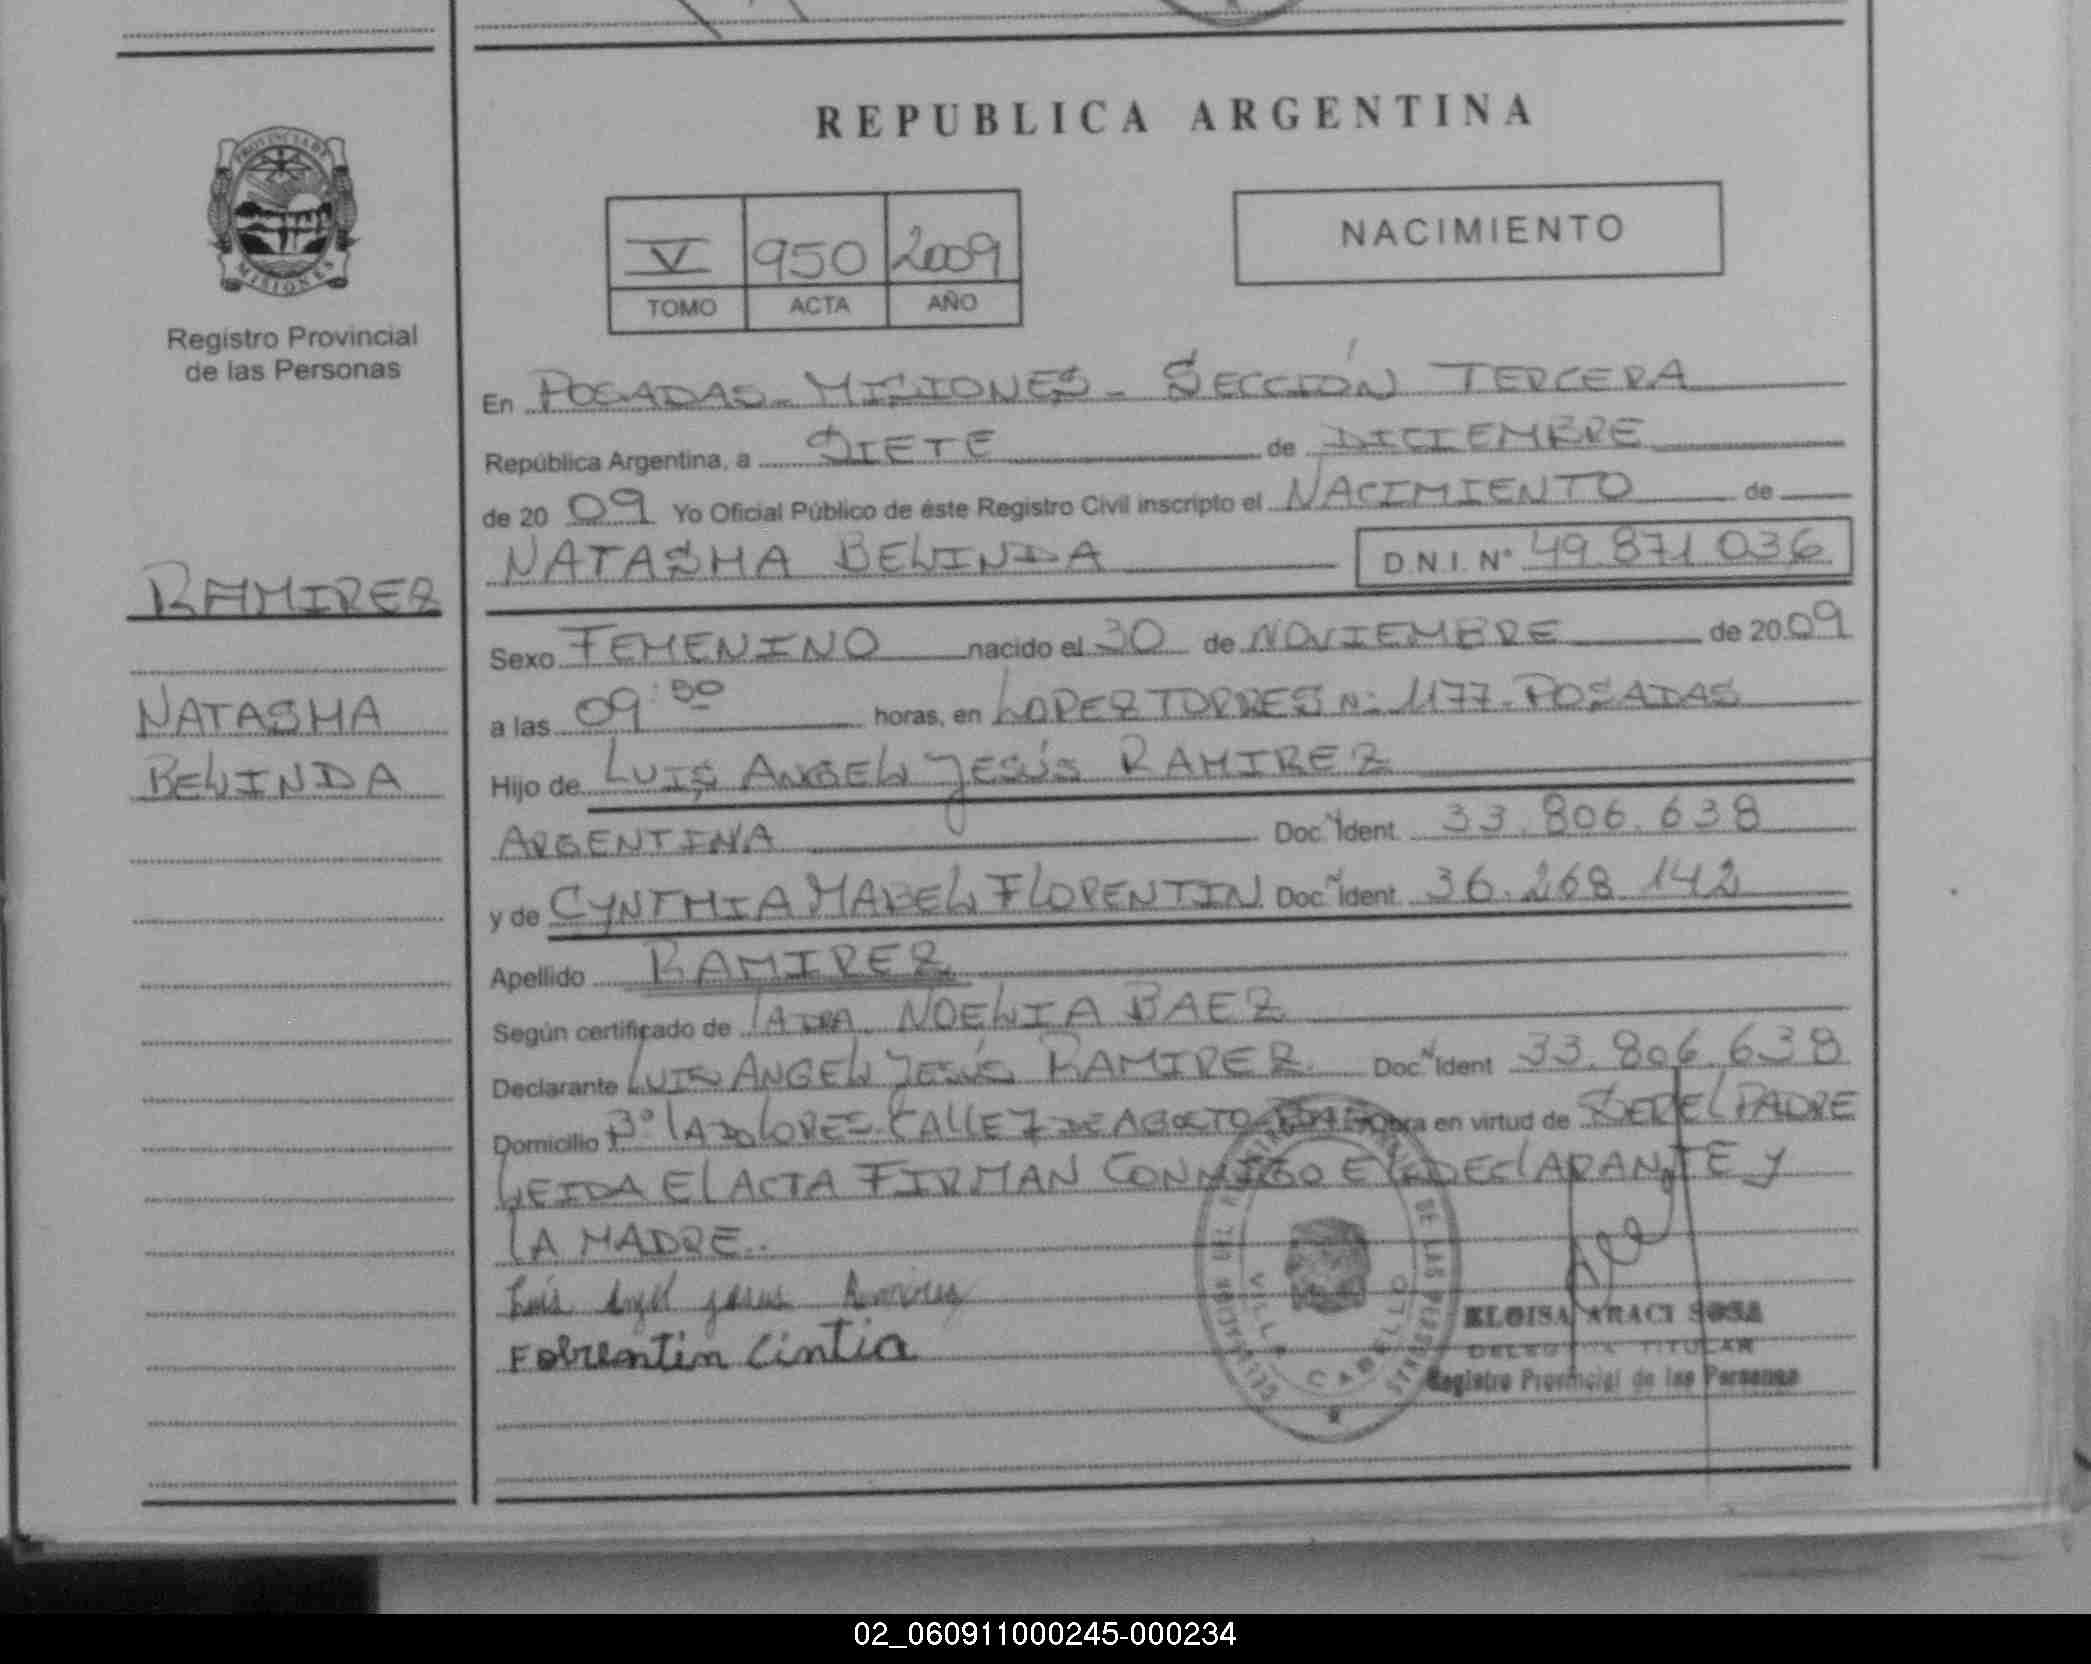 REPUBLICA ARGENTINA
PROVINCIA DE
MISIONES
Registro Provincial
de las Personas
V 950 2009
TOMO ACTA AÑO
NACIMIENTO
En POSADAS - MISIONES - SECCIÓN TERCERA
República Argentina, a SIETE de DICIEMBRE
de 20 09 Yo Oficial Público de éste Registro Civil inscripto el NACIMIENTO de
NATASHA BELINDA D.N.I. N° 49.871.036
RAMIREZ
NATASHA
BELINDA
Sexo FEMENINO nacido el 30 de NOVIEMBRE de 20 09
a las horas, en LOPEZ TORRES N: 1177 - POSADAS
Hijo de LUIS ANGEL JESÚS RAMIREZ
ARGENTINA Doc. Ident. 33.806.638
y de CYNTHIA MABEL FLORENTIN Doc. Ident. 36.268.142
Apellido RAMIREZ
Según certificado de LA DRA. NOELIA BAEZ
Declarante LUIS ANGEL JESÚS RAMIREZ Doc. Ident 33.806.638
Domicilio B° LA DOLORES - CALLE 7 DE AGOSTO Obra en virtud de SER EL PADRE
LEIDA EL ACTA FIRMAN CONMIGO EL DECLARANTE Y
LA MADRE.
Luis Angel Jesus Ramirez
Cintia
DE LAS PERSONAS
VILLA CABELLO
ELOISA ARACI SOSA
DELEGADA TITULAR
Registro Provincial de las Personas
02_060911000245-000234